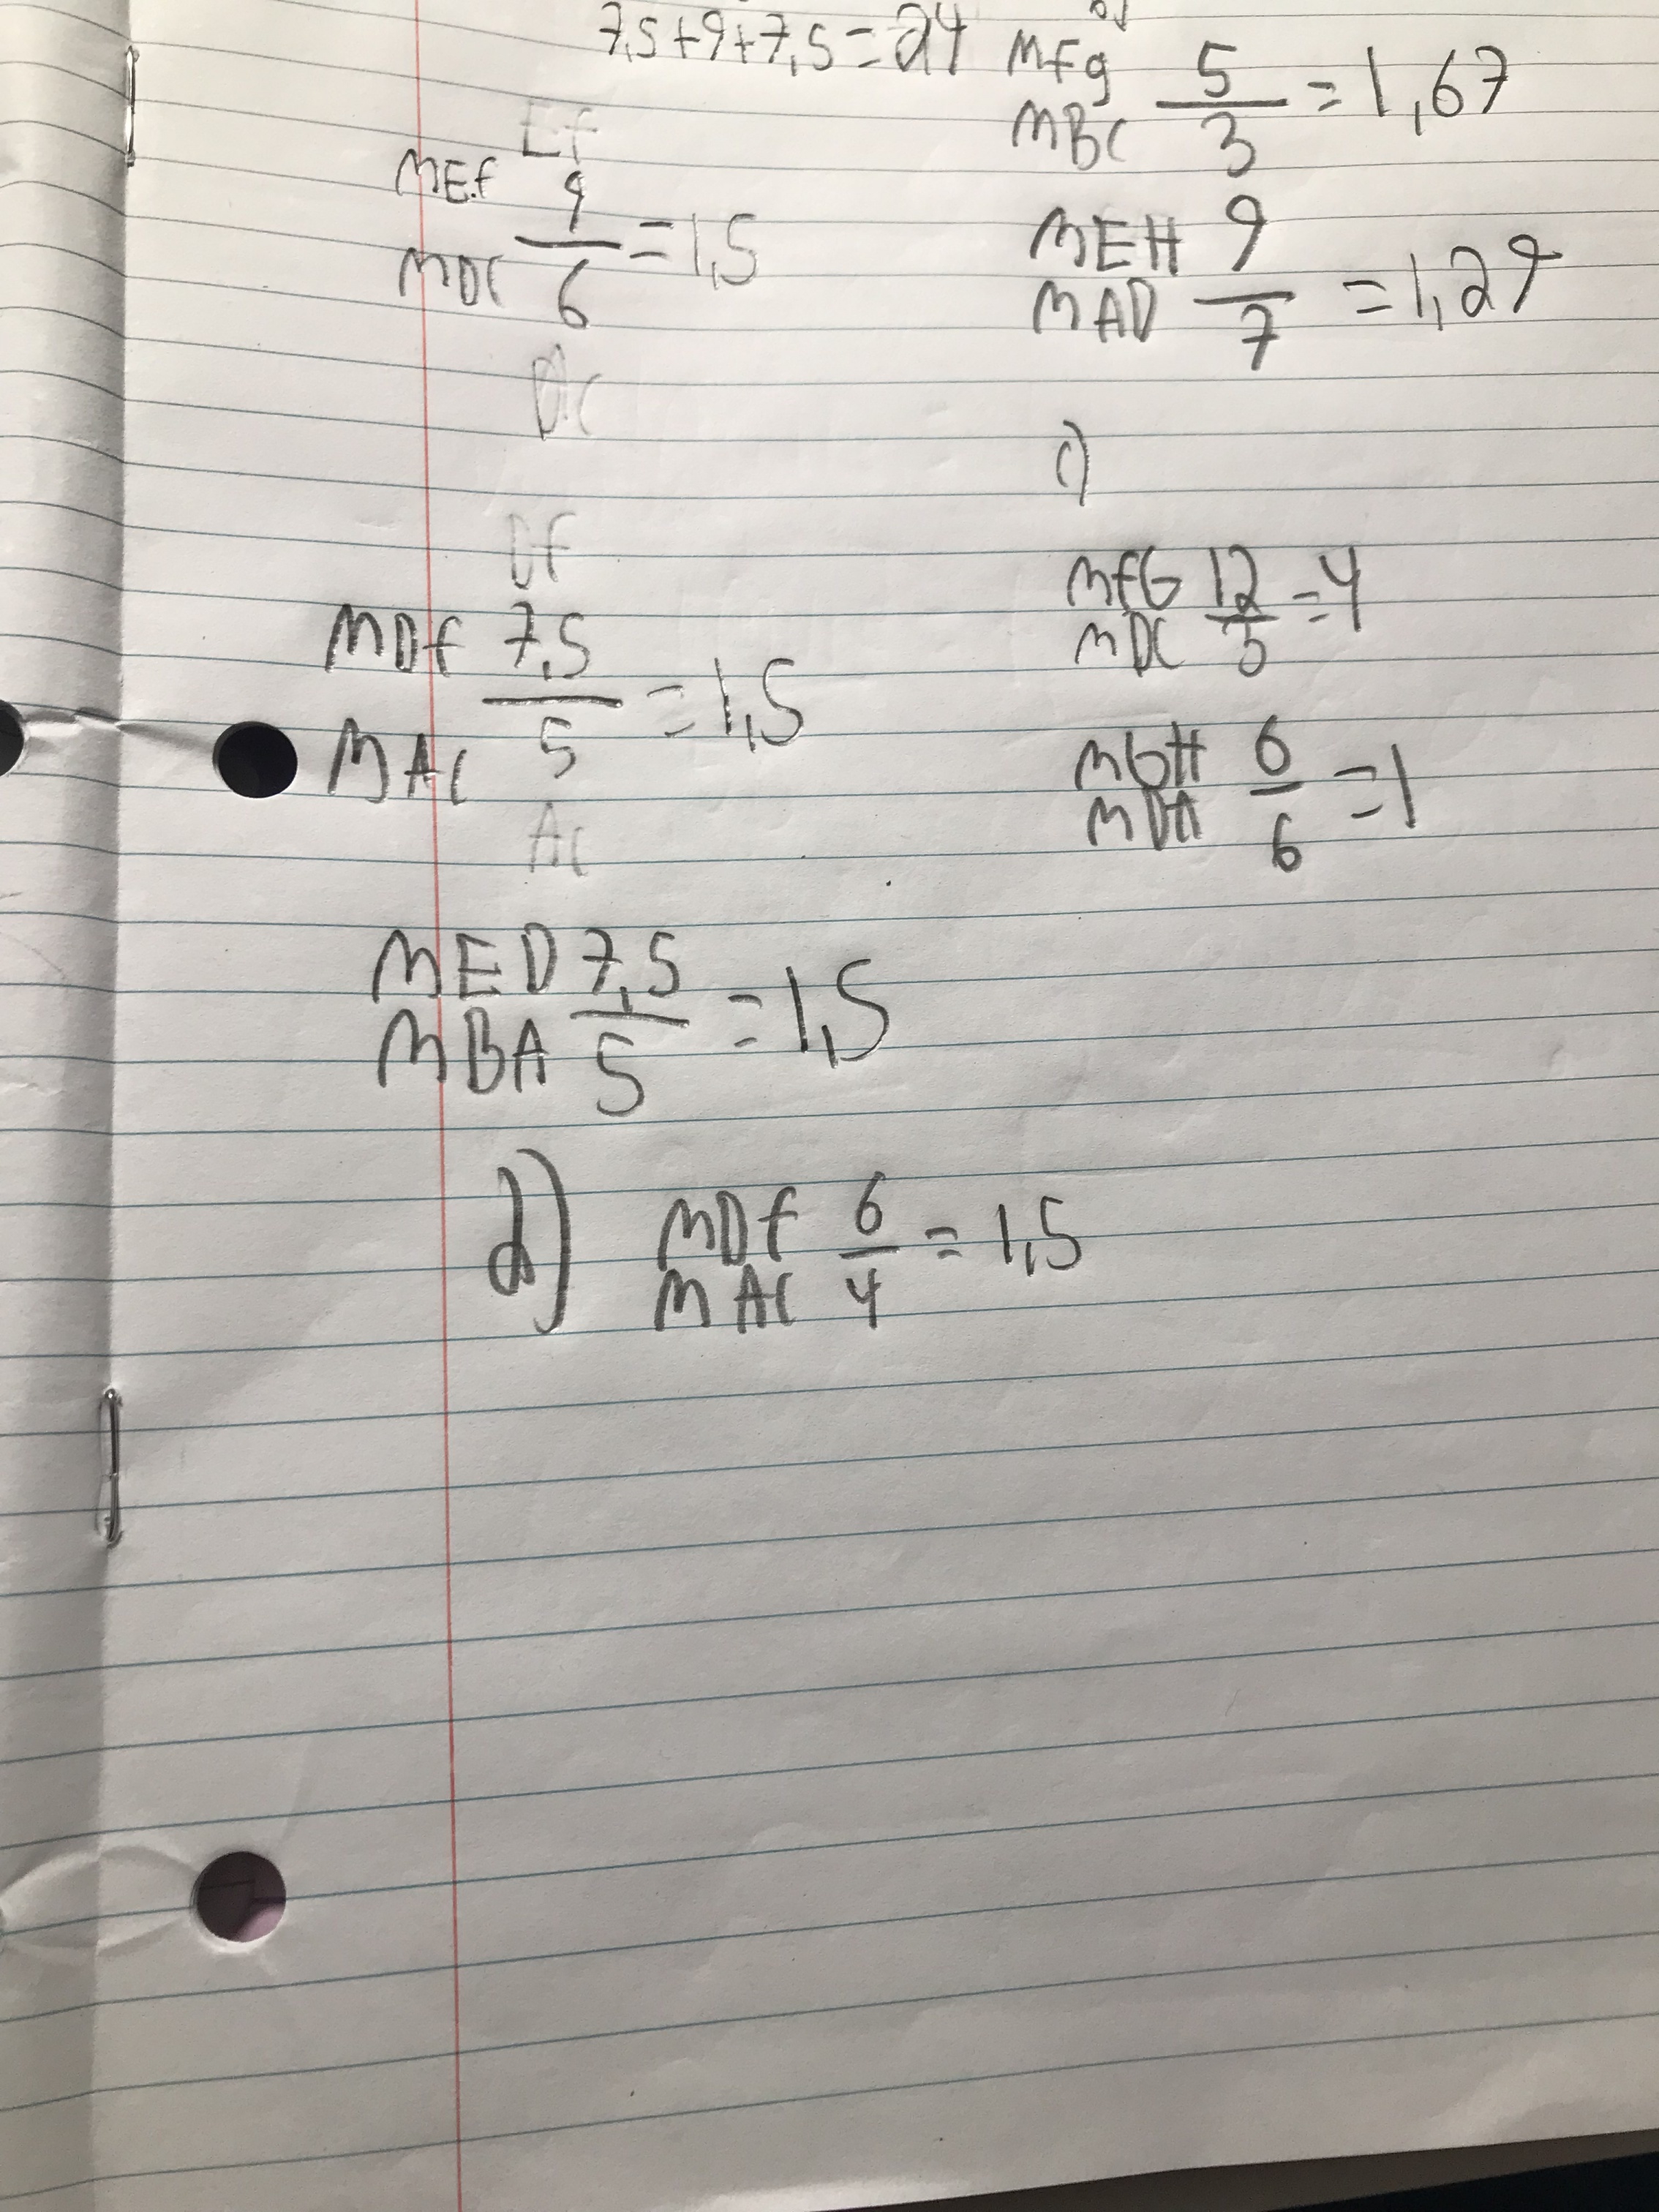 7,5+9+7,5=24
Ef
mEf 9
mDC 6 =1,5
DC
Df
mDf 7,5
mAC 5 =1,5
AC
mED 7,5
mBA 5 =1,5
d) mDf 6
mAC 4 = 1,5
mfg 5
mBC 3 =1,67
mEH 9
mAD 7 =1,29
c)
mfG 12
mDC 3 =4
mGH 6
mDA 6 =1